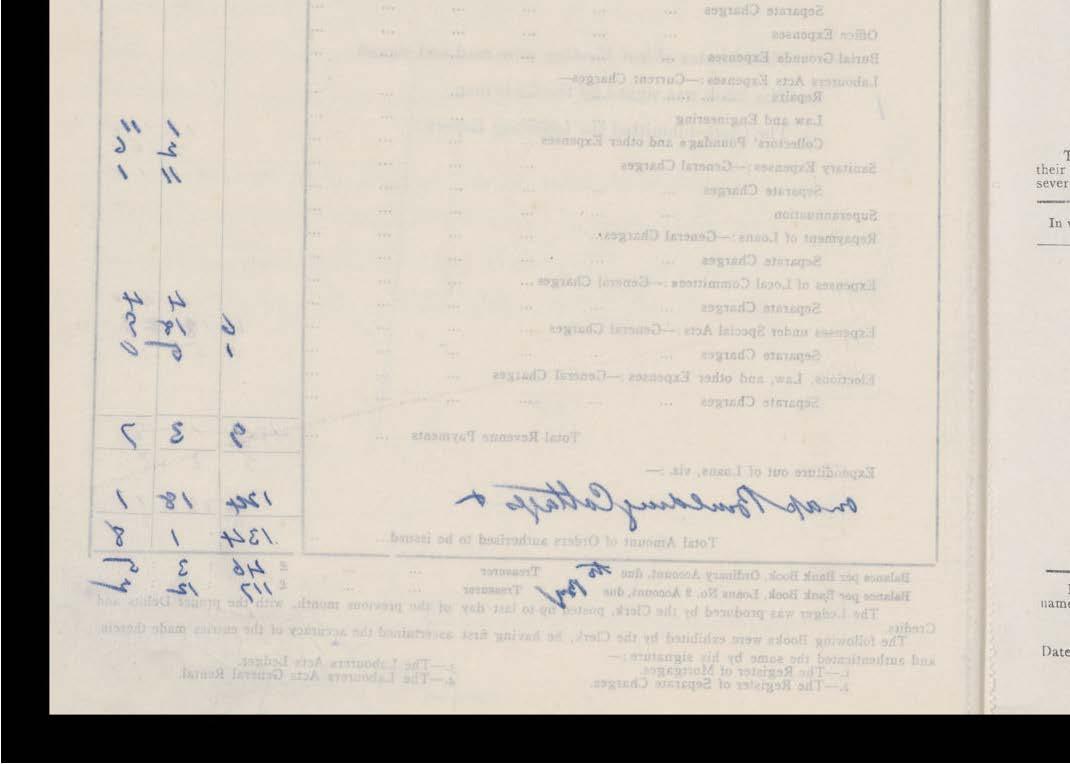 Separate Charges
Office Expenses
Burial Grounds Expenses
Labourers Acts Expenses:—Current Charges—
Repairs
Law and Engineering
Collectors' Poundage and other Expenses
Sanitary Expenses:—General Charges
Separate Charges
Superannuation
Repayment of Loans:—General Charges
Separate Charges
Expenses of Local Committees:—General Charges
Separate Charges
Expenses under Special Acts:—General Charges
Separate Charges
Elections, Law, and other Expenses:—General Charges
Separate Charges
Total Revenue Payments 9 3 7
Expenditure out of Loans, viz.:—
Building Cottages 124 18 1
Total Amount of Orders authorised to be issued 134 1 8
Balance per Bank Book, Ordinary Account, due Treasurer
Balance per Bank Book, Loans No. 2 Account, due Treasurer
The Ledger was produced by the Clerk, posted up to last day of the previous month, with the proper Debits and
Credits.
The following Books were exhibited by the Clerk, he having first ascertained the accuracy of the entries made therein
and authenticated the same by his signature:—
1.—The Register of Mortgages.
2.—The Register of Separate Charges.
3.—The Labourers Acts Ledger.
4.—The Labourers Acts General Rental.
their
sever
In
name
Date